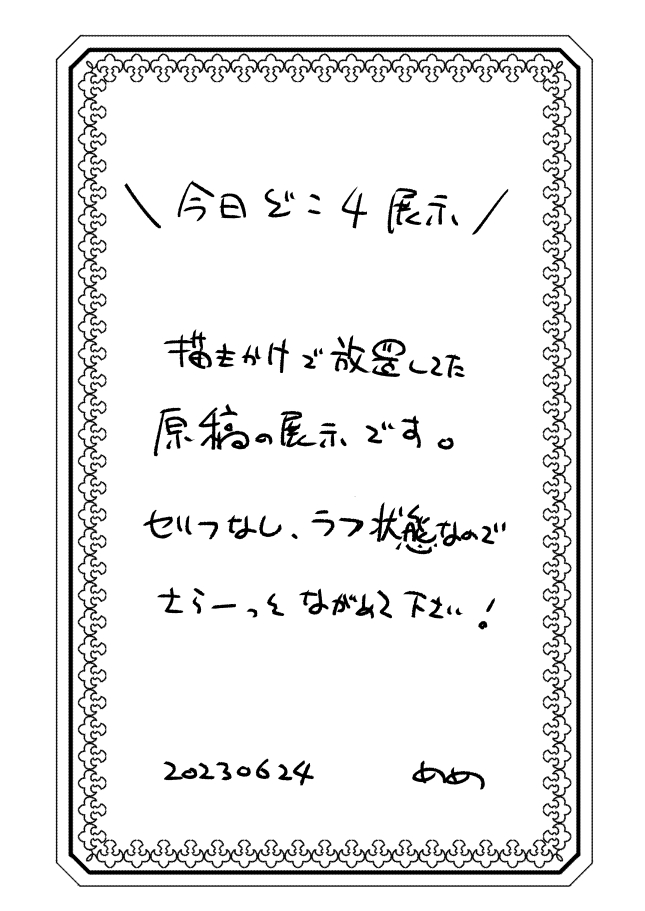 \ 今日どこ4展示 /
描きかけで放置してた
原稿の展示です。
セリフなし、ラフ状態なので
さらーっとながめて下さい!
20230624 めめ